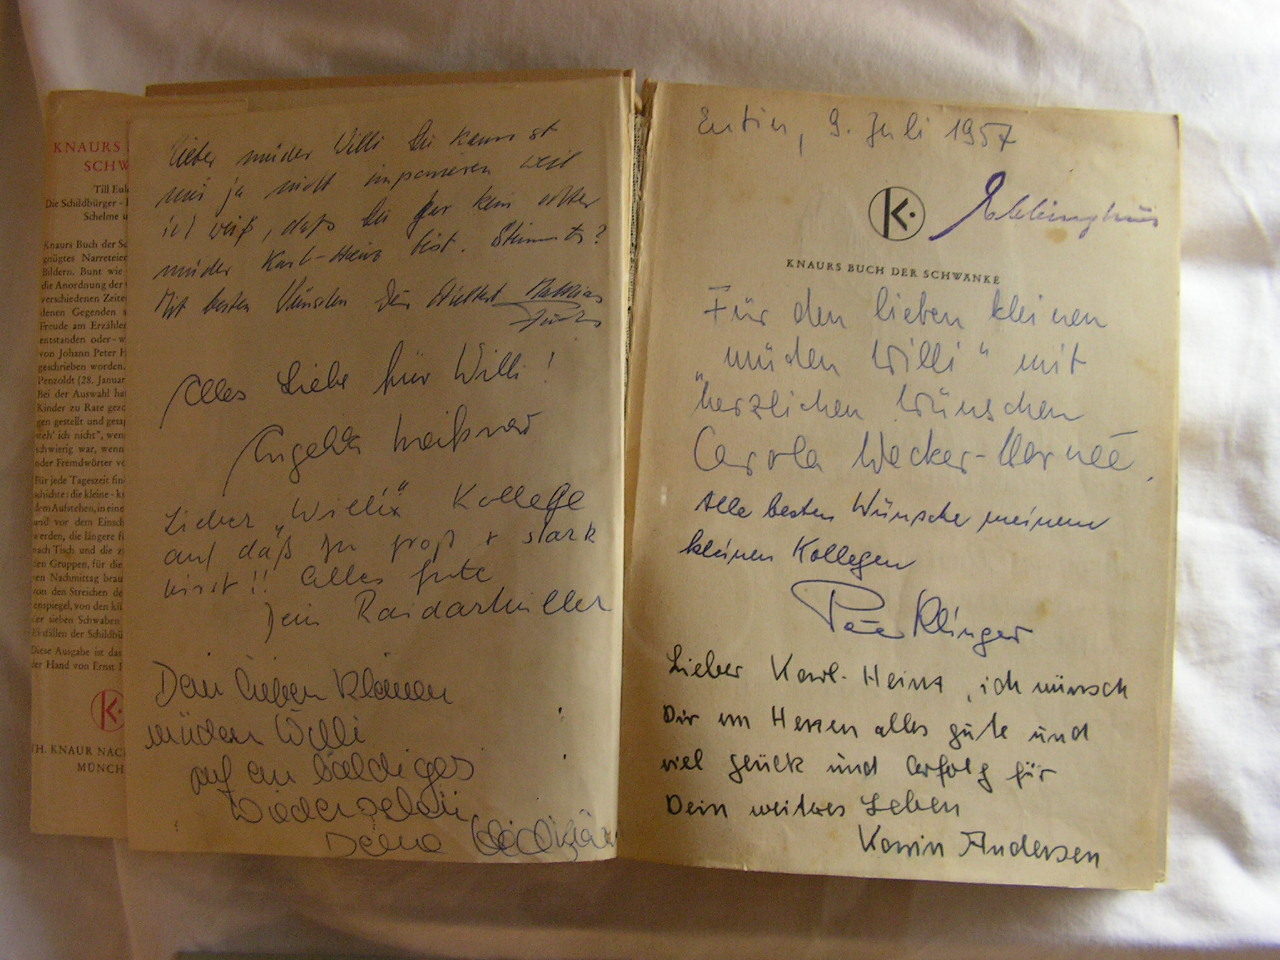 KNAURS
SCHW
Till Eul
Die Schildbürger -
Schelme u
Knaurs Buch der Sc
gnügtes Narreteien
Bildern. Bunt wie
die Anordnung der
verschiedenen Zeite
denen Gegenden s
Freude am Erzählen
entstanden oder - w
von Johann Peter H
geschrieben worden.
Penzoldt (28. Januar
Bei der Auswahl ha
Kinder zu Rate gezo
gen gestellt und gesag
steh' ich nicht", wenn
schwierig war, wenn
oder Fremdwörter vo
Für jede Tageszeit fin
schichte: die kleine - k
dem Aufstehen, in eine
und vor dem Einsch
werden, die längere f
nach Tisch und die z
ten Gruppen, für die
en Nachmittag brau
von den Streichen de
enspiegel, von den kl
er sieben Schwaben
Einfällen der Schildbü
Diese Ausgabe ist das
der Hand von Ernst
K
TH. KNAUR NAC
MÜNCH
Lieber müder Willi Du kannst
mir ja nicht imponieren weil
ich weiß, daß Du gar kein echter
müder Karl-Heinz bist. Stimmts?
Mit besten Wünschen Dein Mathias
Alles Liebe für Willi!
Angelika
Lieber „Willi" Kollege
auf daß Du groß + stark
wirst!! Alles gute
Dein
Dem lieben kleinen
müden Willi
auf ein baldiges
Wiedersehen
Deine
Eutin, 9. Juli 1957
K
KNAURS BUCH DER SCHWÄNKE
Für den lieben kleinen
„müden Willi" mit
herzlichen Wünschen
Carola Wecker-
Alle besten Wünsche meinem
kleinen Kollegen
Peter Klinger
Lieber Karl-Heinz, ich wünsch
Dir im Herzen alles gute und
viel glück und Erfolg für
Dein weiteres Leben
Karin Andersen